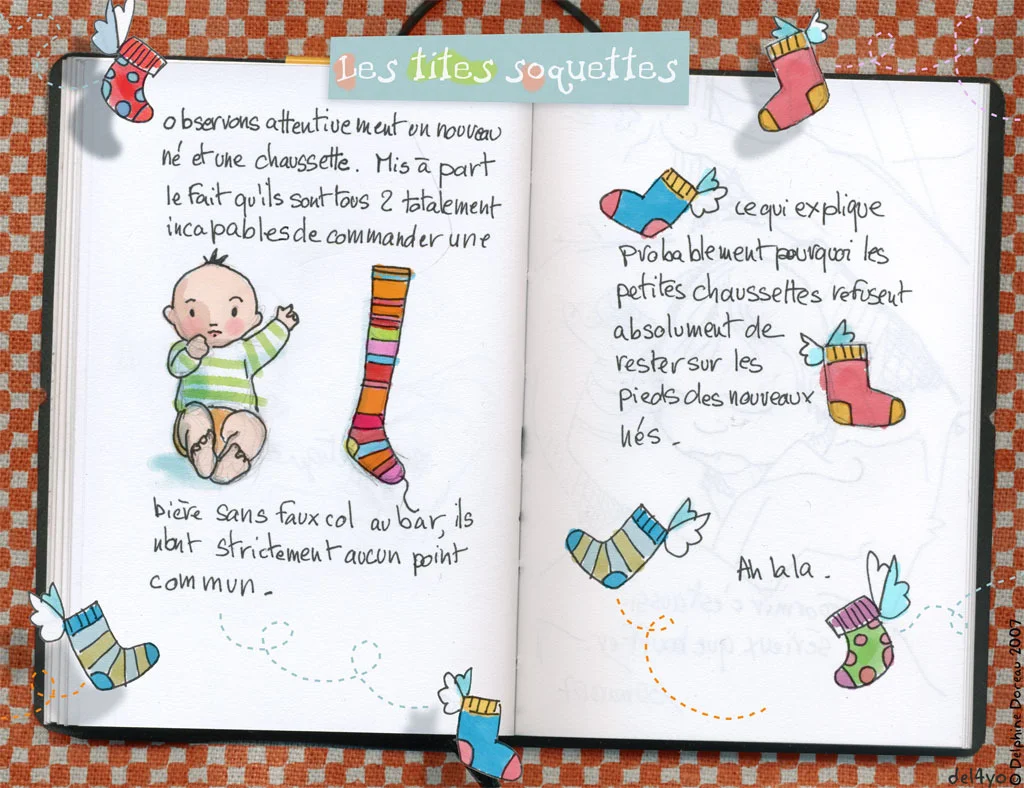 Les tites soquettes
observons attentivement un nouveau
né et une chaussette. Mis à part
le fait qu'ils sont tous 2 totalement
incapables de commander une
bière sans faux col au bar, ils
n'ont strictement aucun point
commun.
ce qui explique
probablement pourquoi les
petites chaussettes refusent
absolument de
rester sur les
pieds des nouveaux
nés.
Ah lala.
del4yo
© Delphine Doreau 2007